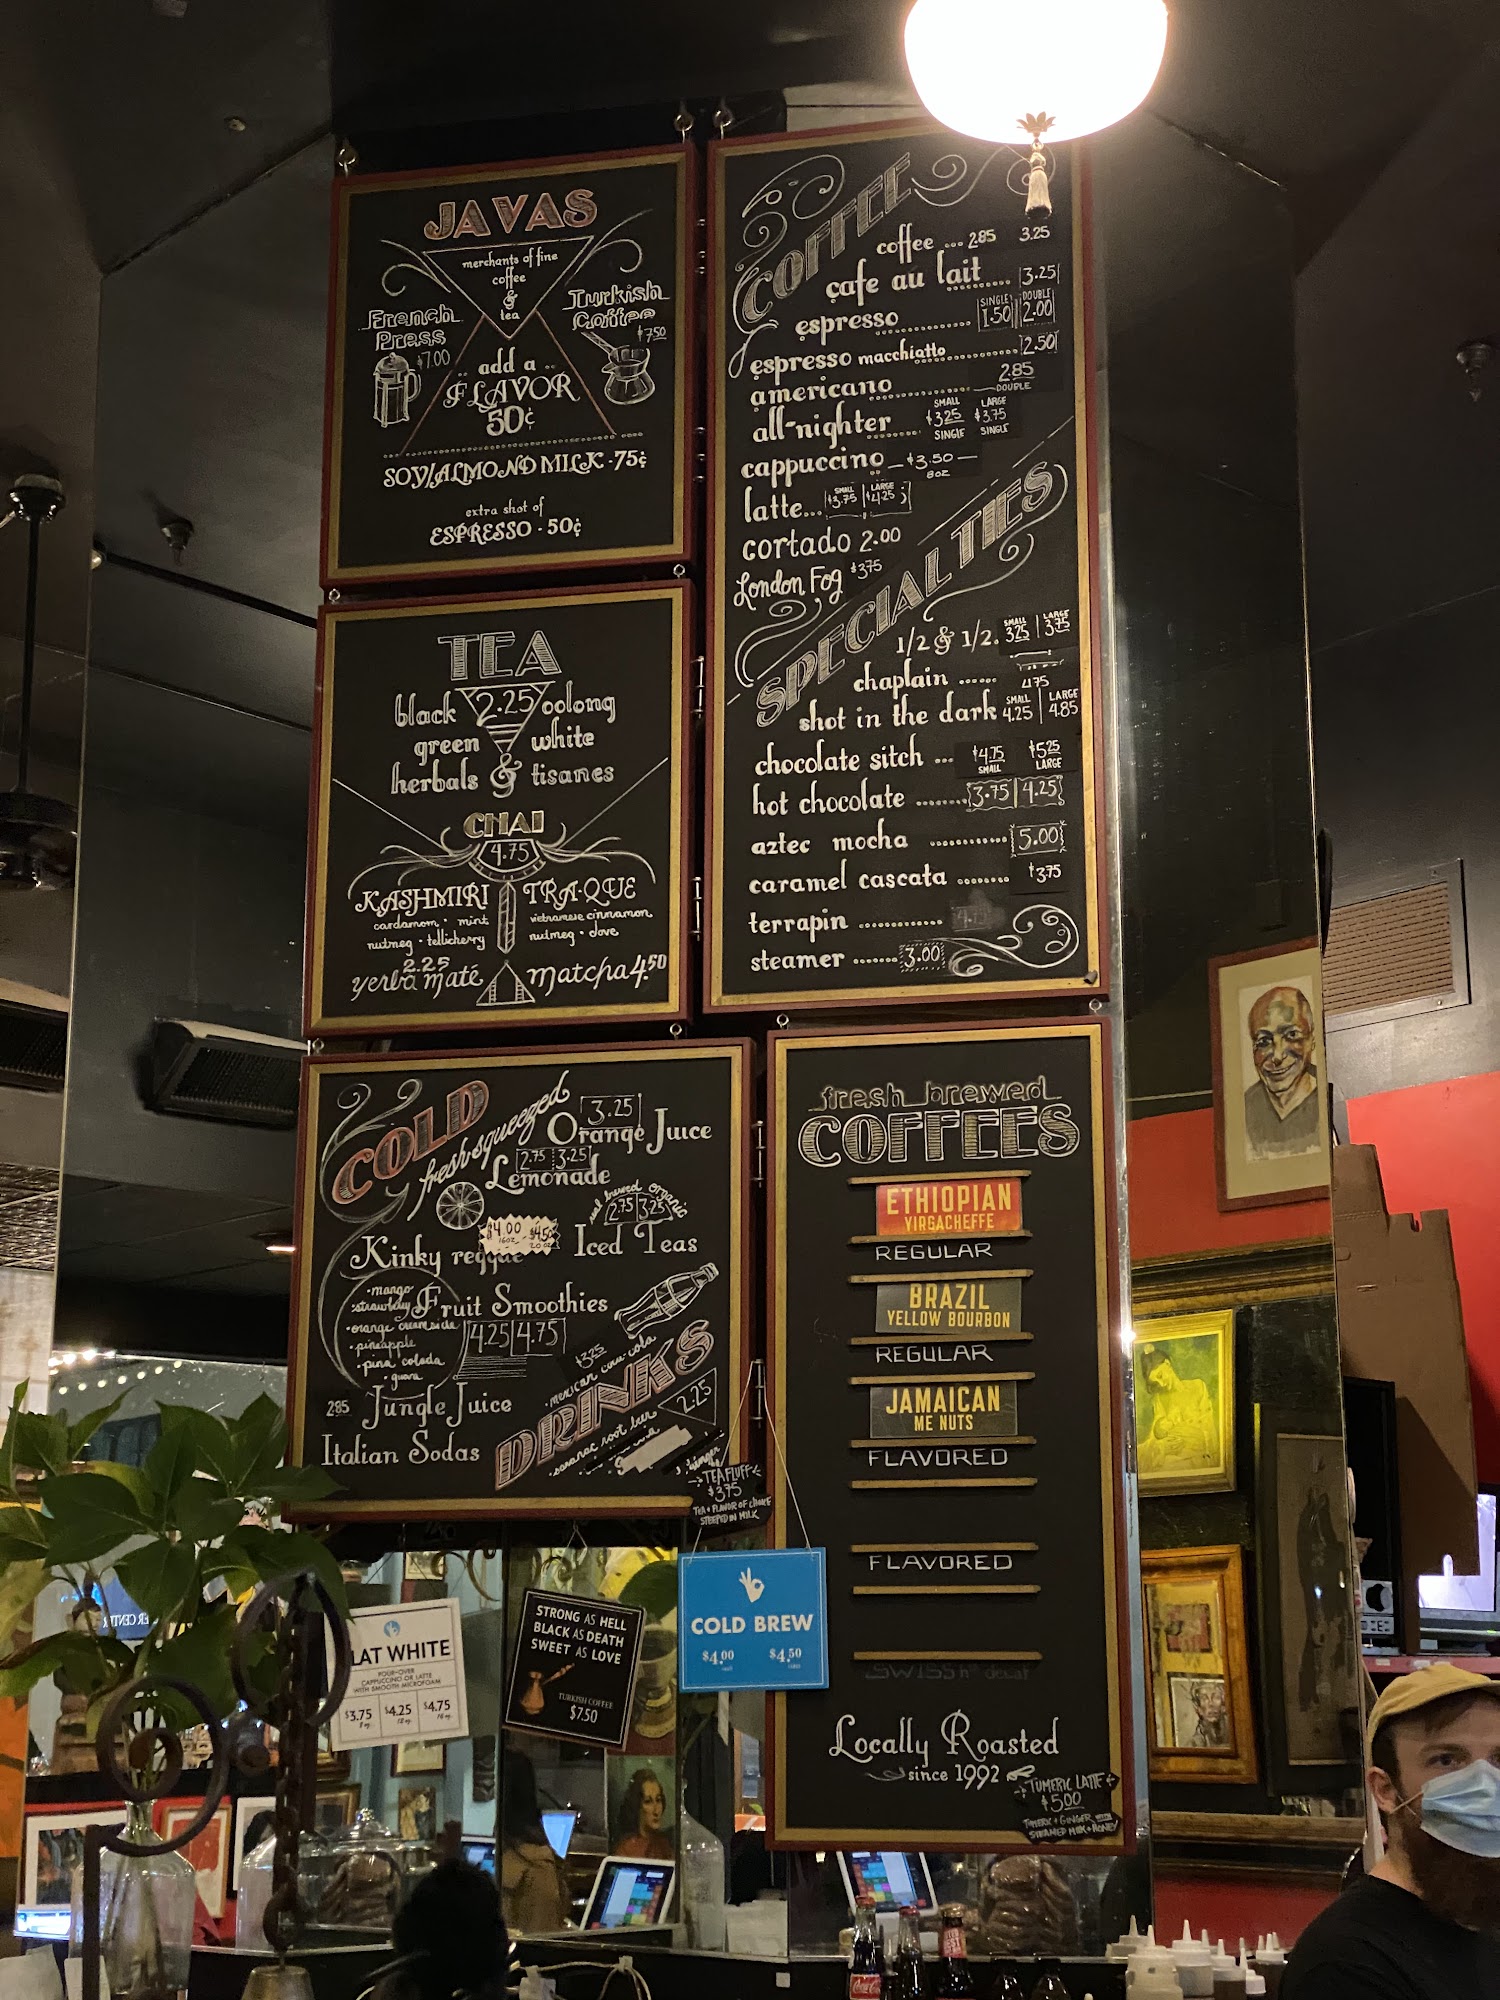 JAVAS
merchants of fine
coffee
&
tea
French
Press
$7.00
Turkish
Coffee
$7.50
add a
FLAVOR
50¢
SOY/ALMOND MILK - 75¢
extra shot of
ESPRESSO - 50¢
TEA
black 2.25 oolong
green white
herbals & tisanes
CHAI
4.75
KASHMIRI
cardamom · mint
nutmeg · tellicherry
TRA-QUE
vietnamese cinnamon
nutmeg · clove
yerba maté 2.25
matcha 4.50
COFFEE
coffee ... 2.85 3.25
cafe au lait ........ 3.25
espresso ............ SINGLE 1.50 DOUBLE 2.00
espresso macchiatto ......... 2.50
americano ............ 2.85 DOUBLE
all-nighter ....... SMALL $3.25 SINGLE LARGE $3.75 SINGLE
cappuccino - $3.50 - 8oz
latte... SMALL $3.75 LARGE $4.25
cortado 2.00
London Fog $3.75
SPECIALTIES
1/2 & 1/2. SMALL 3.25 LARGE 3.75
chaplain ...... 4.75
shot in the dark SMALL 4.25 LARGE 4.85
chocolate sitch ... $4.75 SMALL $5.25 LARGE
hot chocolate ........ 3.75 4.25
aztec mocha ............ 5.00
caramel cascata ........ $3.75
terrapin .............
steamer ....... 3.00
COLD
fresh-squeezed
3.25
Orange Juice
2.75 3.25
Lemonade
brewed organic
2.75 3.25
Iced Teas
$4.00 16oz - $4.50 20oz
Kinky reggae
Fruit Smoothies
4.25 4.75
· mango
· strawberry
· orange creamside
· pineapple
· pina colada
· guava
2.85 Jungle Juice
Italian Sodas
DRINKS
$3.25
mexican coca-cola
2.25
saranac root beer
ginger
TEA FLUFF
$3.75
TEA + FLAVOR OF CHOICE
STEEPED IN MILK
fresh brewed
COFFEES
ETHIOPIAN
YIRGACHEFFE
REGULAR
BRAZIL
YELLOW BOURBON
REGULAR
JAMAICAN
ME NUTS
FLAVORED
FLAVORED
SWISS decaf
Locally Roasted
since 1992
TUMERIC LATTE
$5.00
TUMERIC + GINGER WITH
STEAMED MILK + HONEY
LAT WHITE
POUR-OVER
CAPPUCCINO OR LATTE
WITH SMOOTH MICROFOAM
$3.75 $4.25 $4.75
STRONG AS HELL
BLACK AS DEATH
SWEET AS LOVE
TURKISH COFFEE
$7.50
COLD BREW
$4.00 $4.50
Coca-Cola